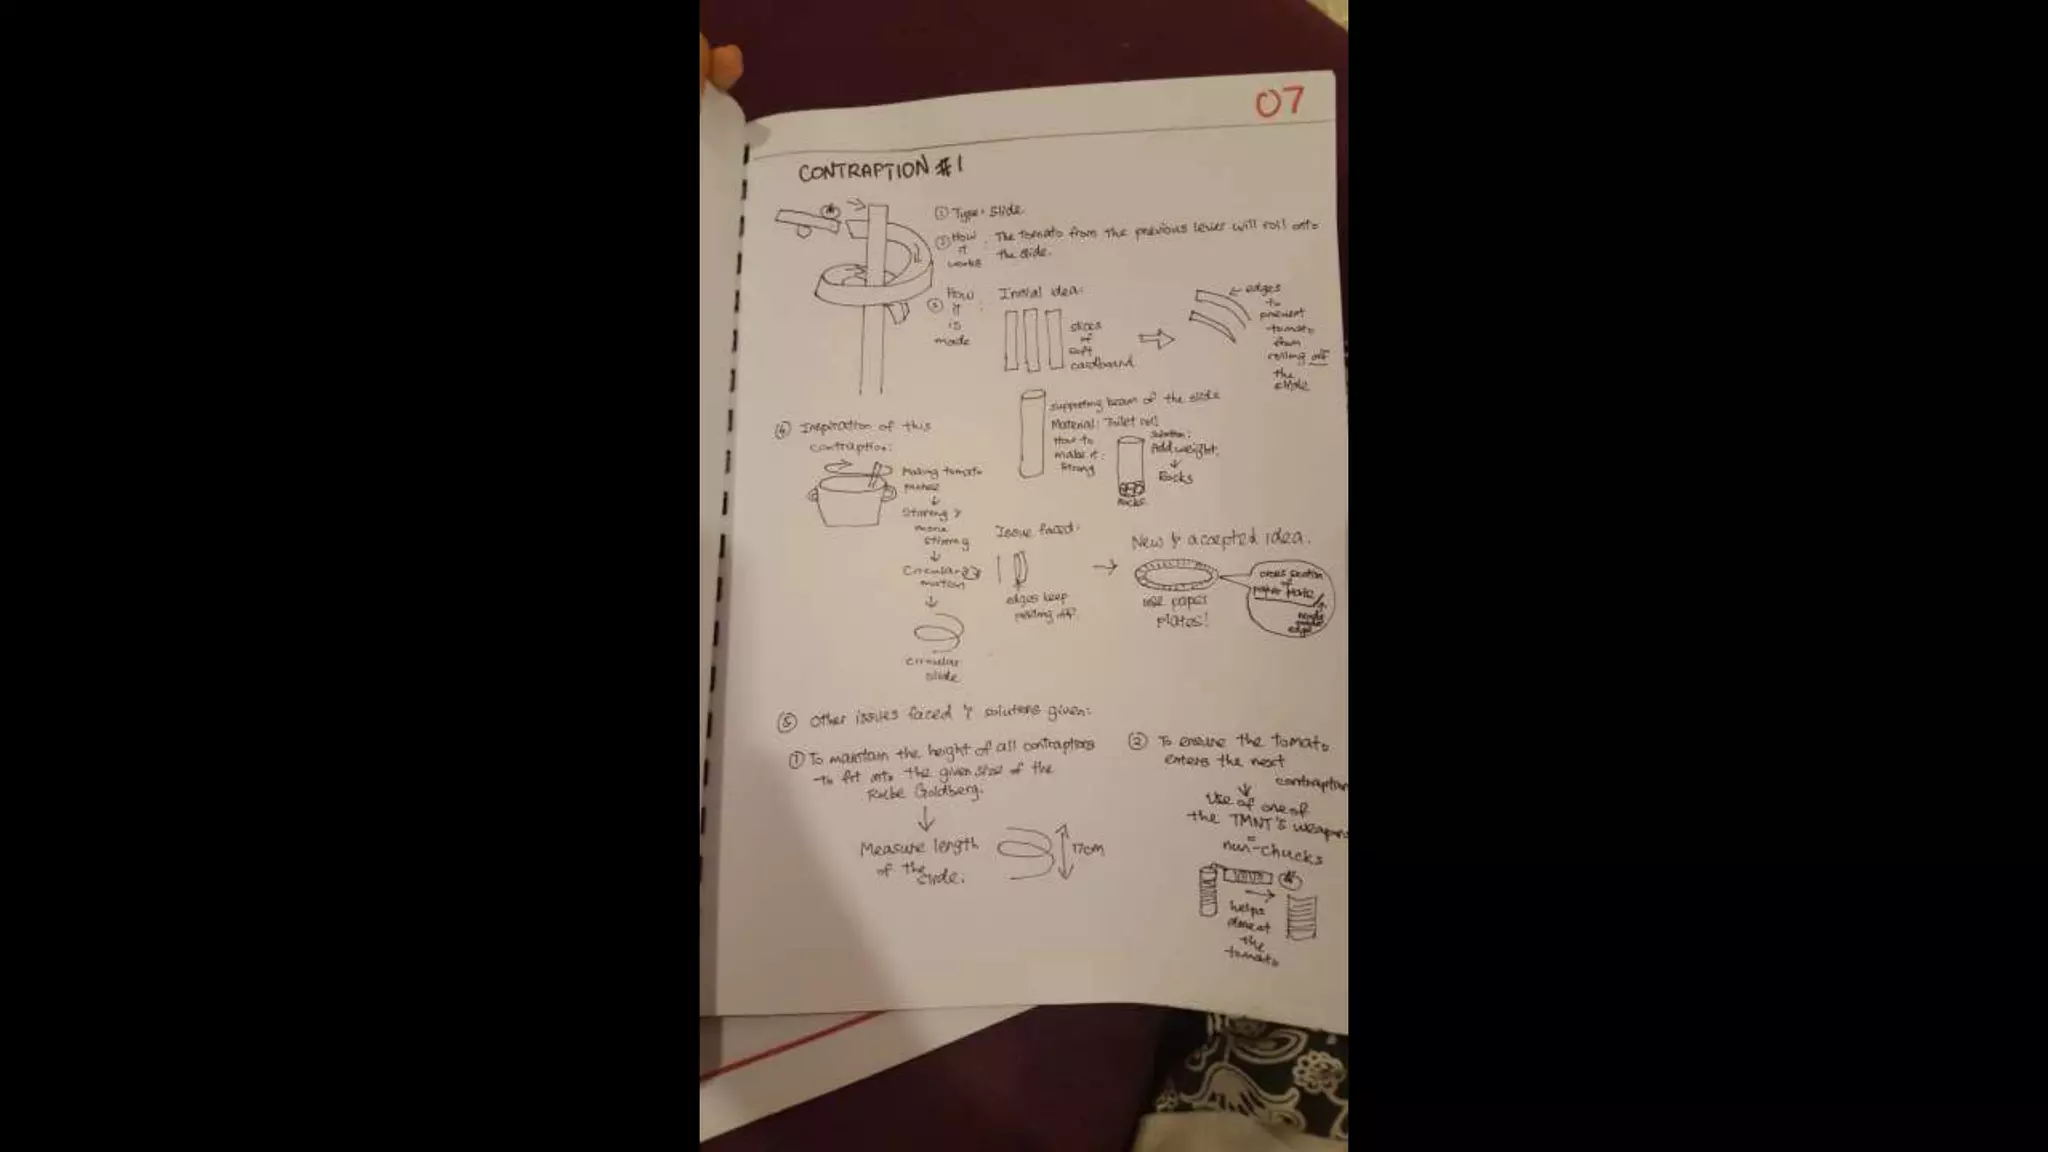 07
CONTRAPTION #1
① Type: Slide
② How it works : The tomato from the previous lever will roll onto
the slide.
③ How it is made : Initial idea:
slices
of
soft
cardboard
edges
to
prevent
tomato
from
rolling off
the
slide
supporting beam of the slide
Material: Toilet roll
How to
make it :
strong
Solution:
Add weight.
Rocks
Rocks
④ Inspiration of this
contraption:
Making tomato
puree
Stirring &
more
stirring
Circular
motion
circular
slide
Issue faced:
edges keep
peeling off
New & accepted idea.
use paper
plates!
cross section
of
paper plate
edge
⑤ Other issues faced & solutions given:
① To maintain the height of all contraptions
to fit into the given size of the
Rube Goldberg.
Measure length
of the
circle.
17cm
② To ensure the tomato
enters the next
contraption
Use of one of
the TMNT's weapon
=
nun-chucks
helps
direct
the
tomato